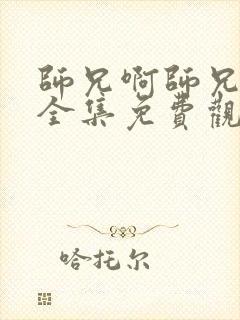 師兄啊師兄
全集免費觀
哈托尔